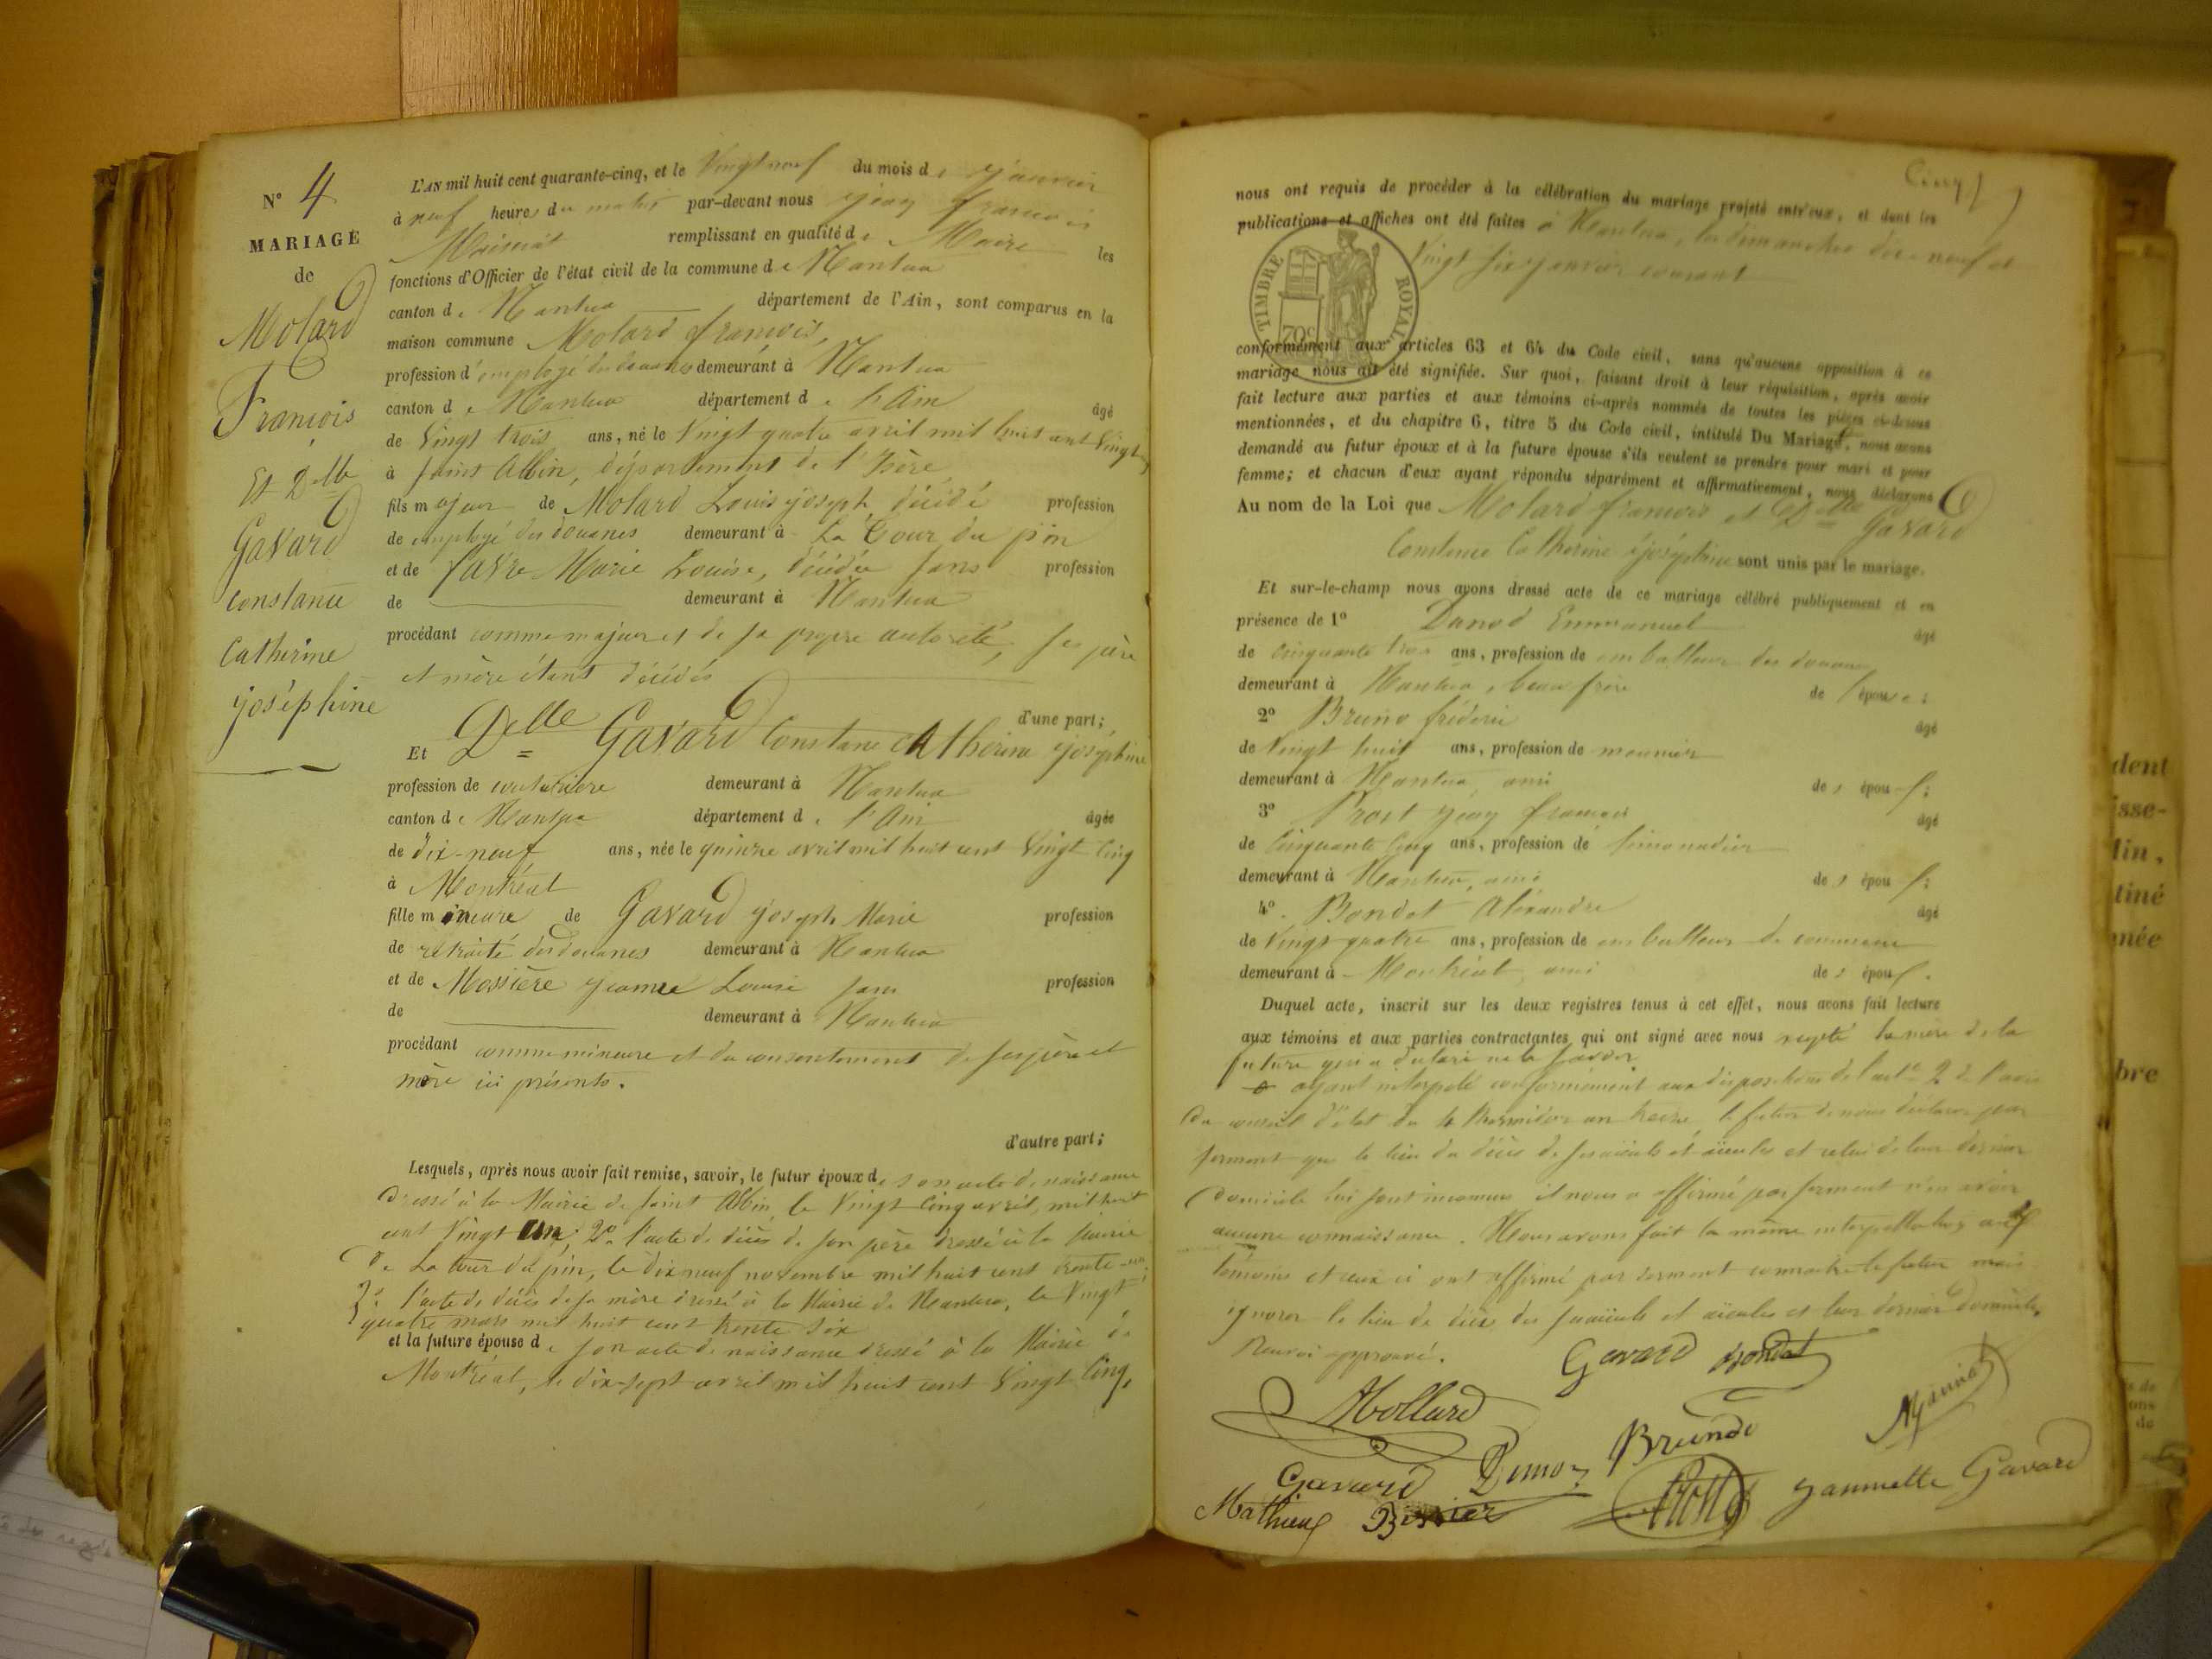 N° 4
MARIAGE
de
Molard
François
Et Delle
Gavard
Constance
Catherine
joséphine
L'AN mil huit cent quarante-cinq, et le Vingt neuf du mois de janvier
à neuf heures du matin par-devant nous jean françois
remplissant en qualité de Maire les
fonctions d'Officier de l'état civil de la commune de Nantua
canton de Nantua département de l'Ain, sont comparus en la
maison commune Molard françois,
profession d'employé des douanes demeurant à Nantua
canton de Nantua département de l'Ain âgé
de Vingt trois ans, né le Vingt quatre avril mil huit cent Vingt
à Saint Albin, département de l'Isère
fils majeur de Molard Louis joseph, décédé profession
de employé des douanes demeurant à La Tour du pin
et de favre Marie Louise, décédée sans profession
de demeurant à Nantua
procédant comme majeur et de sa propre autorité, ses père
et mère étant décédés
d'une part;
Et Delle Gavard Constance Catherine joséphine
profession de couturière demeurant à Nantua
canton de Nantua département de l'Ain âgée
de dix-neuf ans, née le quinze avril mil huit cent Vingt Cinq
à Montréal
fille mineure de Gavard joseph Marie profession
de retraité des douanes demeurant à Nantua
et de Massière jeanne Louise sans profession
de demeurant à Nantua
procédant comme mineure et du consentement de ses père et
mère ici présents.
d'autre part;
Lesquels, après nous avoir fait remise, savoir, le futur époux de son acte de naissance
dressé à la Mairie de Saint Albin le Vingt Cinq avril mil huit
cent Vingt un; 2° l'acte de décès de son père dressé à la Mairie
de La tour du pin, le dix neuf novembre mil huit cent trente-un
3° l'acte de décès de sa mère dressé à la Mairie de Nantua, le Vingt
quatre mars mil huit cent trente six
et la future épouse de son acte de naissance dressé à la Mairie de
Montréal, le dix-sept avril mil huit cent Vingt Cinq,
Cinq
nous ont requis de procéder à la célébration du mariage projeté entr'eux, et dont les
publications et affiches ont été faites à Nantua, les dimanches dix-neuf et
Vingt six janvier courant
TIMBRE ROYAL
70c
conformément aux articles 63 et 64 du Code civil, sans qu'aucune opposition à ce
mariage nous ait été signifiée. Sur quoi, faisant droit à leur réquisition, après avoir
fait lecture aux parties et aux témoins ci-après nommés de toutes les pièces ci-dessus
mentionnées, et du chapitre 6, titre 5 du Code civil, intitulé Du Mariage, nous avons
demandé au futur époux et à la future épouse s'ils veulent se prendre pour mari et pour
femme; et chacun d'eux ayant répondu séparément et affirmativement, nous déclarons
Au nom de la Loi que Molard françois et Delle Gavard
Constance Catherine joséphine sont unis par le mariage.
Et sur-le-champ nous avons dressé acte de ce mariage célébré publiquement et en
présence de 1° Emmanuel âgé
de Cinquante trois ans, profession de emballeur des douanes
demeurant à Nantua, beau frère de l'époux;
2° Bruno fréderic âgé
de Vingt huit ans, profession de meunier
demeurant à Nantua, ami des époux;
3° Prost jean françois âgé
de Cinquante Cinq ans, profession de limonadier
demeurant à Nantua, ami des époux;
4° Bondet Alexandre âgé
de Vingt quatre ans, profession de emballeur de commerce
demeurant à Montréal, ami des époux.
Duquel acte, inscrit sur les deux registres tenus à cet effet, nous avons fait lecture
aux témoins et aux parties contractantes qui ont signé avec nous excepté la mère de la
future qui a déclaré ne le savoir
ayant interpelé conformément aux dispositions de l'acte 2 de l'avis
du conseil d'état du 4 thermidor an treize, le futur de nous déclarer par
serment que le lieu du décès de ses aïeuls et aïeules et celui de leur dernier
domicile lui sont inconnus il nous a affirmé par serment n'en avoir
aucune connaissance. Nous avons fait la même interpellation aux
témoins et ceux ci ont affirmé par serment connaître le futur mais
ignorer le lieu de décès des aïeuls et aïeules et leur dernier domicile.
Renvoi approuvé.
Gavard Bondet
Mollard
Bruno
Gavard
Prost
Jannette Gavard
Mathieu